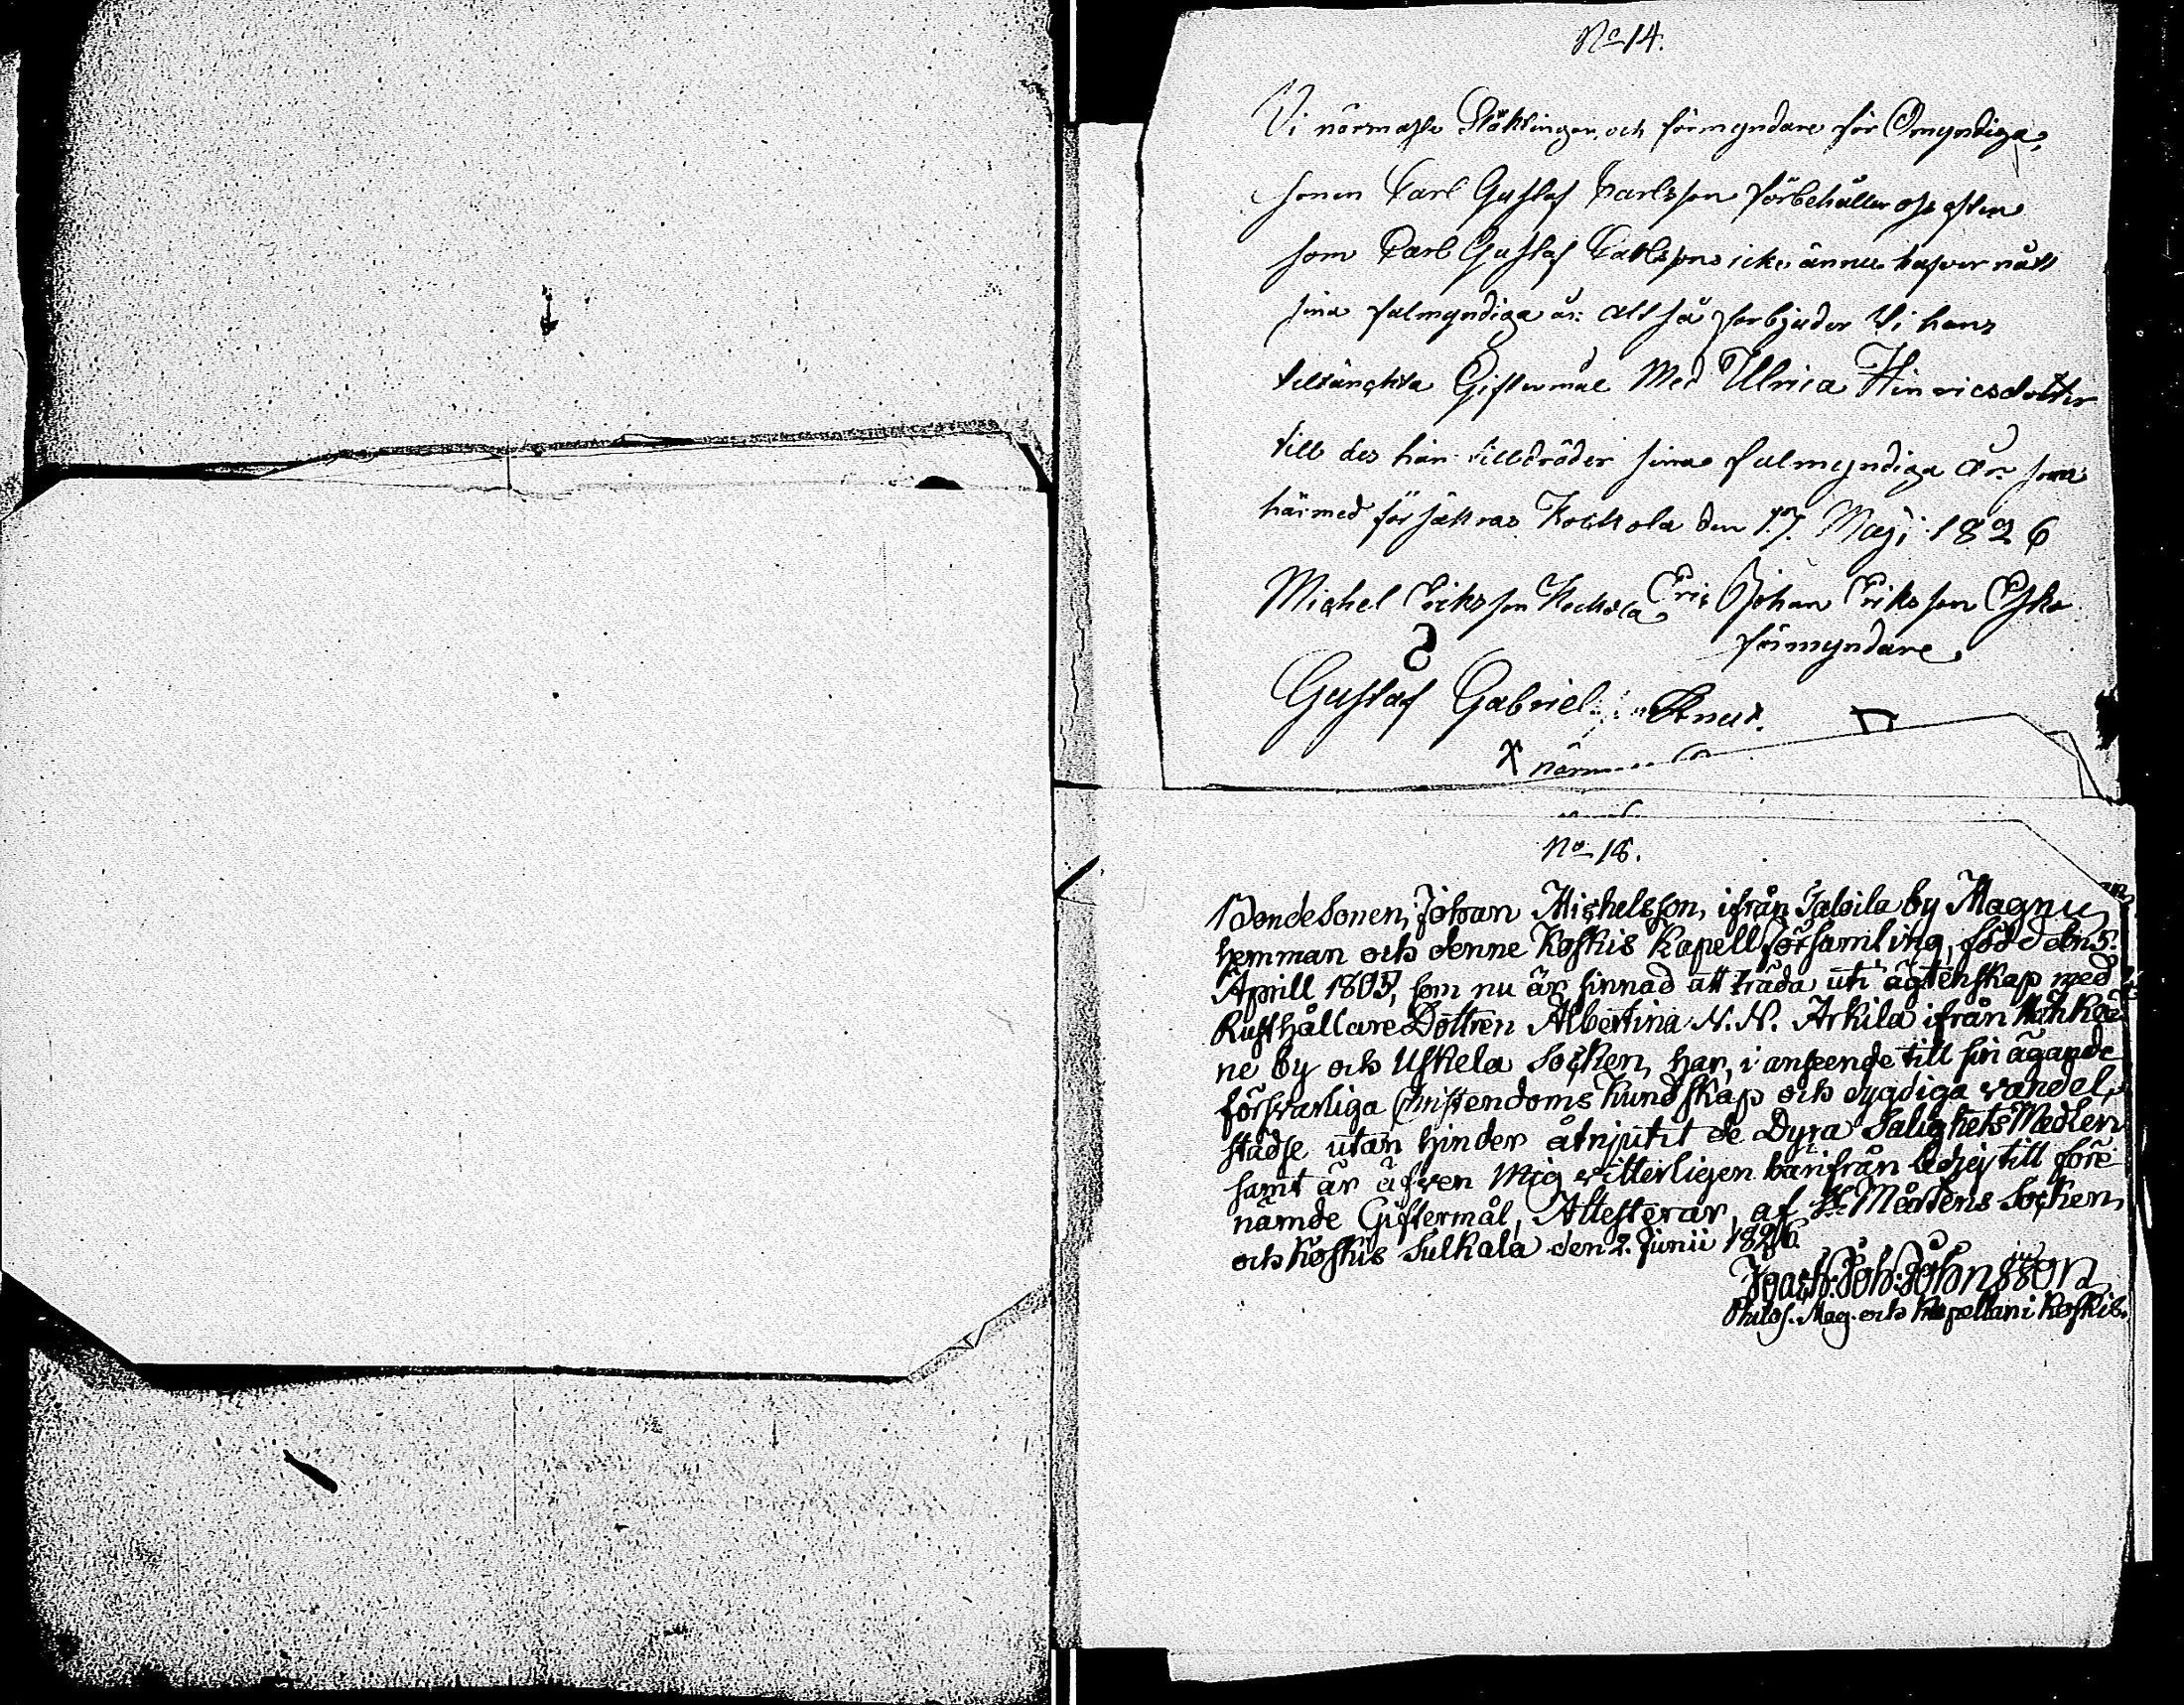 No 14.
Vi närmaste Släktingar och förmyndare för Omyndiga
sonen Carl Gustaf Carlsson förbehåller oss efter
som Carl Gustaf Carlsson icke ännu hafver nått
sina fulmyndiga år: alt så förbjuder Vi hans
tiltänckta Giftermål Med Ullrica Hinricsdotter
till des han tillträder sina fulmyndiga År. som
härmed försäkras Kockola den 17. Maji 1826
Michel Ericksson Kockola Eric Johan Eriksson Eska
förmyndare
Gustaf Gabriel Knut.
No 18.
Bondesonen, Johan Michelsson, ifrån Talvila by Magnu
hemman och denne Koskis Kapell Församling, född den 5.
Aprill 1805, som nu är sinnad att träda uti ägtenskap med
Rusthållare Dottren Albertina N. N. Arkila ifrån
ne by och Uskela Socken, har, i anseende till sin ägande
försvarliga Christendoms Kundskap och dygdiga vandel,
städse utan hinder åtnjutit de Dyra Salighets Medlen
samt är äfven Mig vitterligen härifrån ledig till före
nämde Giftermål, Attesterar, af St. Mårtens Socken,
och Koskis Sulkala den 2. Junii 1826.
Joh: Johnsson
Philos. Mag. och Kapellan i Koskis.